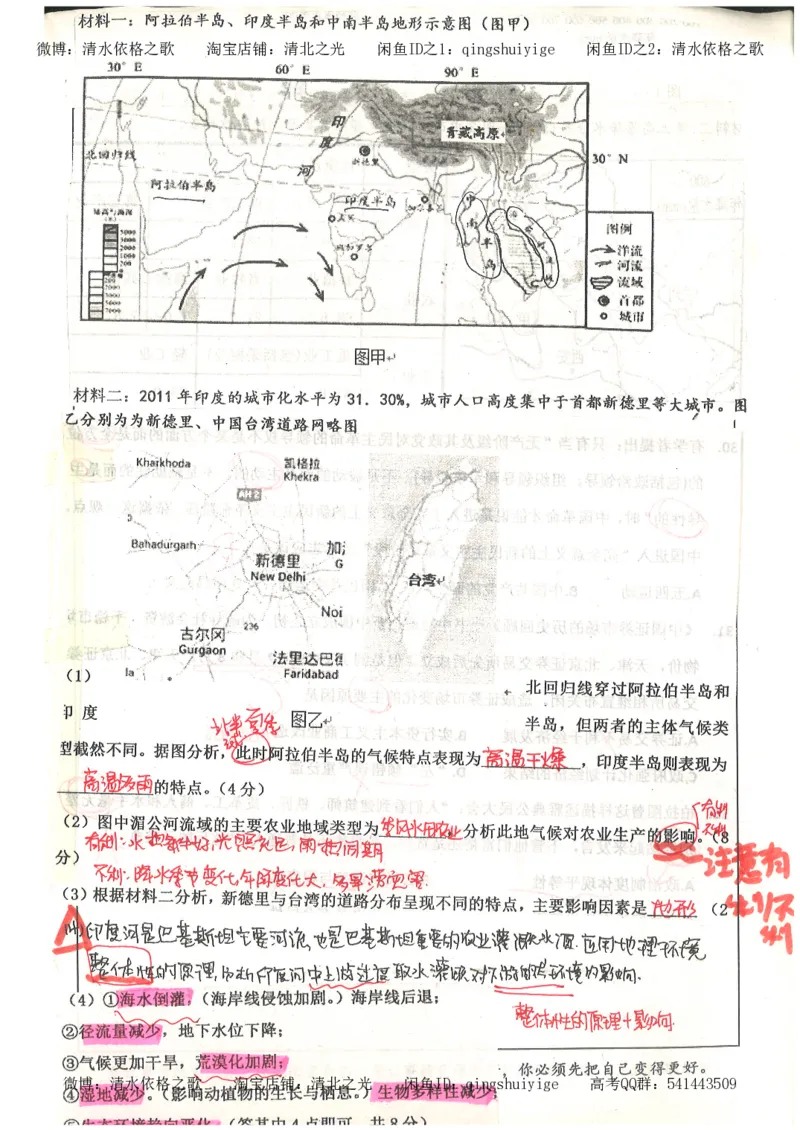 材料一：阿拉伯半岛、印度半岛和中南半岛地形示意图（图甲）
微博：清水依格之歌 淘宝店铺：清北之光 闲鱼ID之1：qingshuiyige 闲鱼ID之2：清水依格之歌
30°E 60°E 90°E
印度河
青藏高原
新德里
北回归线
30°N
阿拉伯半岛
印度半岛
中南半岛
孟买
5000
3000
2000
1000
200
图例
洋流
河流
流域
首都
城市
图甲
材料二：2011年印度的城市化水平为31．30%，城市人口高度集中于首都新德里等大城市。图
乙分别为为新德里、中国台湾道路网略图
Kharkhoda 凯格拉
Khekra
AH2
Bahadurgarh
新德里
New Delhi
Noi
台湾
古尔冈
Gurgaon
236
法里达巴
Faridabad
图乙
（1） 北回归线穿过阿拉伯半岛和
印 度 半岛，但两者的主体气候类
北半球夏季
型截然不同。据图分析，此时阿拉伯半岛的气候特点表现为高温干燥，印度半岛则表现为
高温多雨的特点。（4分）
（2）图中湄公河流域的主要农业地域类型为季风水田农业分析此地气候对农业生产的影响。（8
分）
有利
不利
有利：水热条件好，光照充足，雨热同期
不利：降水季节变化、年际变化大，多旱涝灾害
注意有利/不利
（3）根据材料二分析，新德里与台湾的道路分布呈现不同的特点，主要影响因素是地形（2
印度河是巴基斯坦主要河流，也是巴基斯坦重要的农业灌溉水源。运用地理环境
整体性的原理，分析印度河中上游过量取水灌溉对下游的环境的影响.
整体性的原理+影响
（4）①海水倒灌，（海岸线侵蚀加剧。）海岸线后退；
②径流量减少，地下水位下降；
③气候更加干旱，荒漠化加剧；
，你必须先把自己变得更好。
微博：清水依格之歌 淘宝店铺：清北之光 闲鱼ID：qingshuiyige 高考QQ群：541443509
④湿地减少。（影响动植物的生长与栖息。）生物多样性减少；
⑤生态环境趋向恶化。（答其中4点即可，共8分）